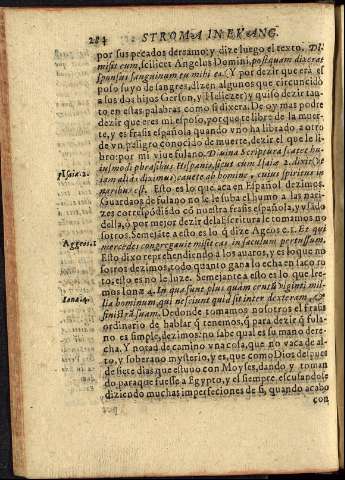 284 STROMA IN EVANG.
por sus pecados derramo; y dize luego el texto. Di-
misit eum, scilicet Angelus Domini, postquam dixerat
sponsus sanguinum tu mihi es. Y por dezir que era es
poso suyo de sangres, dizen algunos que circuncidò
a los dos hijos Gerson, y Heliezer; y quiso dezir tan-
to en estas palabras como si dixera. De oy mas podre
dezir que eres mi esposo, porque te libre de la muer-
te, y es frasis española quando vno ha librado a otro
de vn peligro conocido de muerte, dezir el que le li-
bro: por mi viue fulano. Diuina Scriptura scatet hu-
iusmodi phrasibus Hispanis, sicut cum Isaiæ 2. dixit
Isaiæ 2.
quiescite ab homine, cuius spiritus in
naribus est. Esto es lo que aca en Español dezimos.
Guardaos de fulano no le suba el humo a las nari-
zes correspōdiēdo cō nuestra frasis española, y vsādo
della, ò por mejor dezir de la Escritura le tomamos no
sotros. Semejāte a esto es lo q̄ dize Ageos c. 1. Et qui
Aggeos. 1
mercedes congregauit misit eas in saculum pertussum.
Esto dixo reprehendiendo a los auaros, y es lo que no
sotros dezimos, todo quanto gana lo echa en saco ro
to, esto es no le luze. Semejante a esto es lo que lee-
mos Ionæ 4. In qua sunt plus quàm centū viginti mil-
Ionæ. 4.
lia hominum, qui nesciunt quid sit inter dexteram, &
sinistrā suam. De donde tomamos nosotros el frasis
ordinario de hablar q̄ tenemos, q̄ para dezir q̄ fula-
no es simple, dezimos: no sabe qual es su mano dere-
cha. Y notad de camino vna cosa, que no vaca de al-
to, y soberano mysterio, y es, que como Dios despues
de siete dias que estuuo con Moysen, dando y toman
do para que fuesse a Egypto, y el siempre escusandose
diziendo muchas imperfeciones de si, quando acabò
con